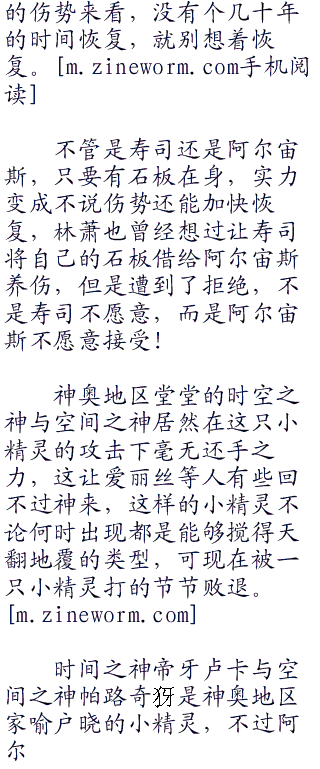 的伤势来看，没有个几十年
的时间恢复，就别想着恢
复。[m.zineworm.com手机阅
读]
不管是寿司还是阿尔宙
斯，只要有石板在身，实力
变成不说伤势还能加快恢
复，林萧也曾经想过让寿司
将自己的石板借给阿尔宙斯
养伤，但是遭到了拒绝，不
是寿司不愿意，而是阿尔宙
斯不愿意接受！
神奥地区堂堂的时空之
神与空间之神居然在这只小
精灵的攻击下毫无还手之
力，这让爱丽丝等人有些回
不过神来，这样的小精灵不
论何时出现都是能够搅得天
翻地覆的类型，可现在被一
只小精灵打的节节败退。
[m.zineworm.com]
时间之神帝牙卢卡与空
间之神帕路奇犽是神奥地区
家喻户晓的小精灵，不过阿
尔